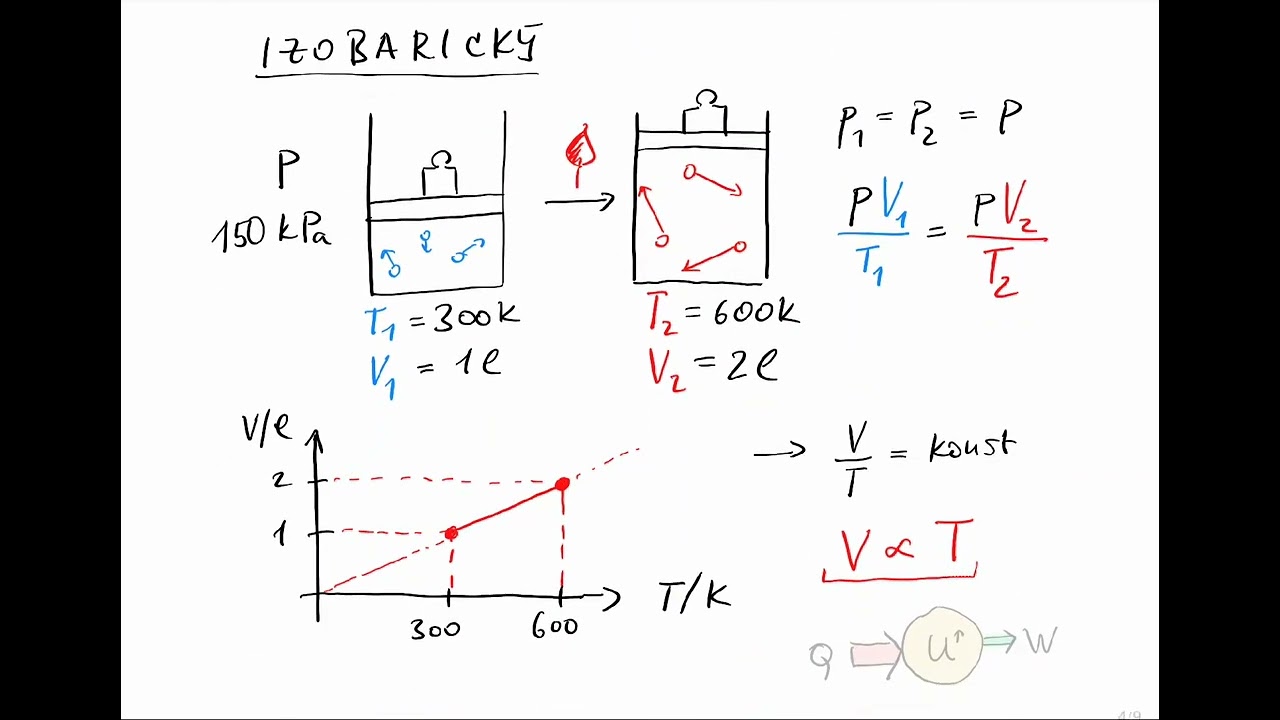 IZOBARICKÝ
P
150 kPa
T₁ = 300K
V₁ = 1ℓ
T₂ = 600K
V₂ = 2ℓ
P₁ = P₂ = P
PV₁/T₁ = PV₂/T₂
V/ℓ
2
1
300
600
T/K
→ V/T = konst
V ∝ T
Q
U↑
W